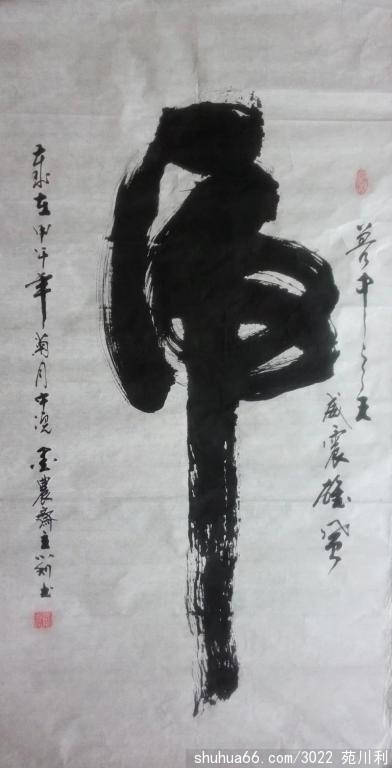 兽中之王
威震雄风
虎
岁在甲午年菊月中浣墨农斋主利书
shuhua66.com/3022 苑川利